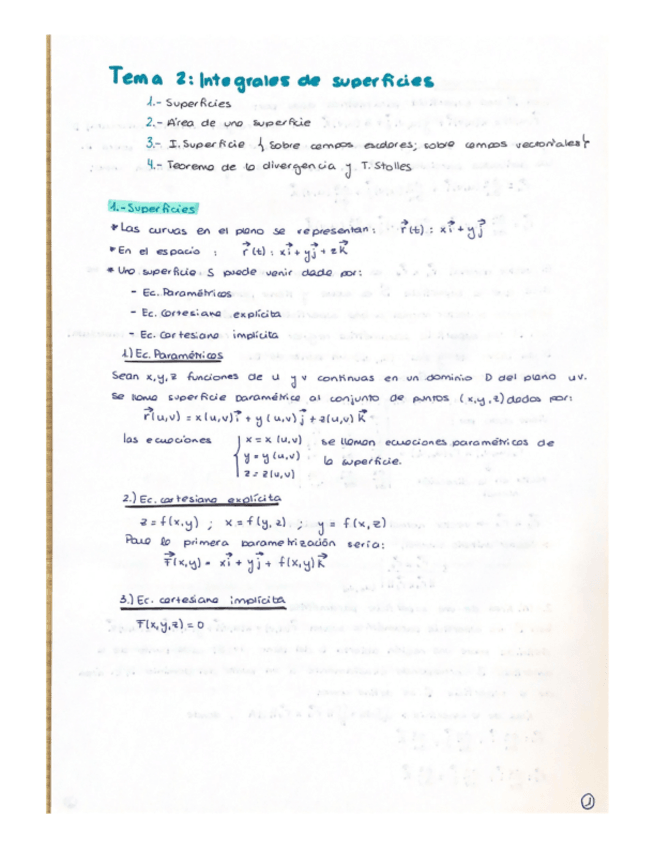 Tema 2: Integrales de superficies
1.- Superficies
2.- Área de una superficie
3.- I. Superficie { Sobre campos escalares; sobre campos vectoriales }
4.- Teorema de la divergencia y T. Stolles
1.- Superficies
* Las curvas en el plano se representan: r⃗(t) : x i⃗ + y j⃗
* En el espacio : r⃗(t) : x i⃗ + y j⃗ + z k⃗
* Una superficie S puede venir dada por:
- Ec. Paramétricas
- Ec. Cartesiana explícita
- Ec. Cartesiana implícita
1) Ec. Paramétricas
Sean x, y, z funciones de u y v continuas en un dominio D del plano uv.
Se llama superficie paramétrica al conjunto de puntos (x,y,z) dados por:
r⃗(u,v) = x(u,v) i⃗ + y(u,v) j⃗ + z(u,v) k⃗
las ecuaciones { x = x(u,v) se llaman ecuaciones paramétricas de
y = y(u,v) la superficie.
z = z(u,v)
2.) Ec. cartesiana explícita
z = f(x,y) ; x = f(y,z) ; y = f(x,z)
Para la primera parametrización sería:
r⃗(x,y) = x i⃗ + y j⃗ + f(x,y) k⃗
3.) Ec. cartesiana implícita
F(x,y,z) = 0
1